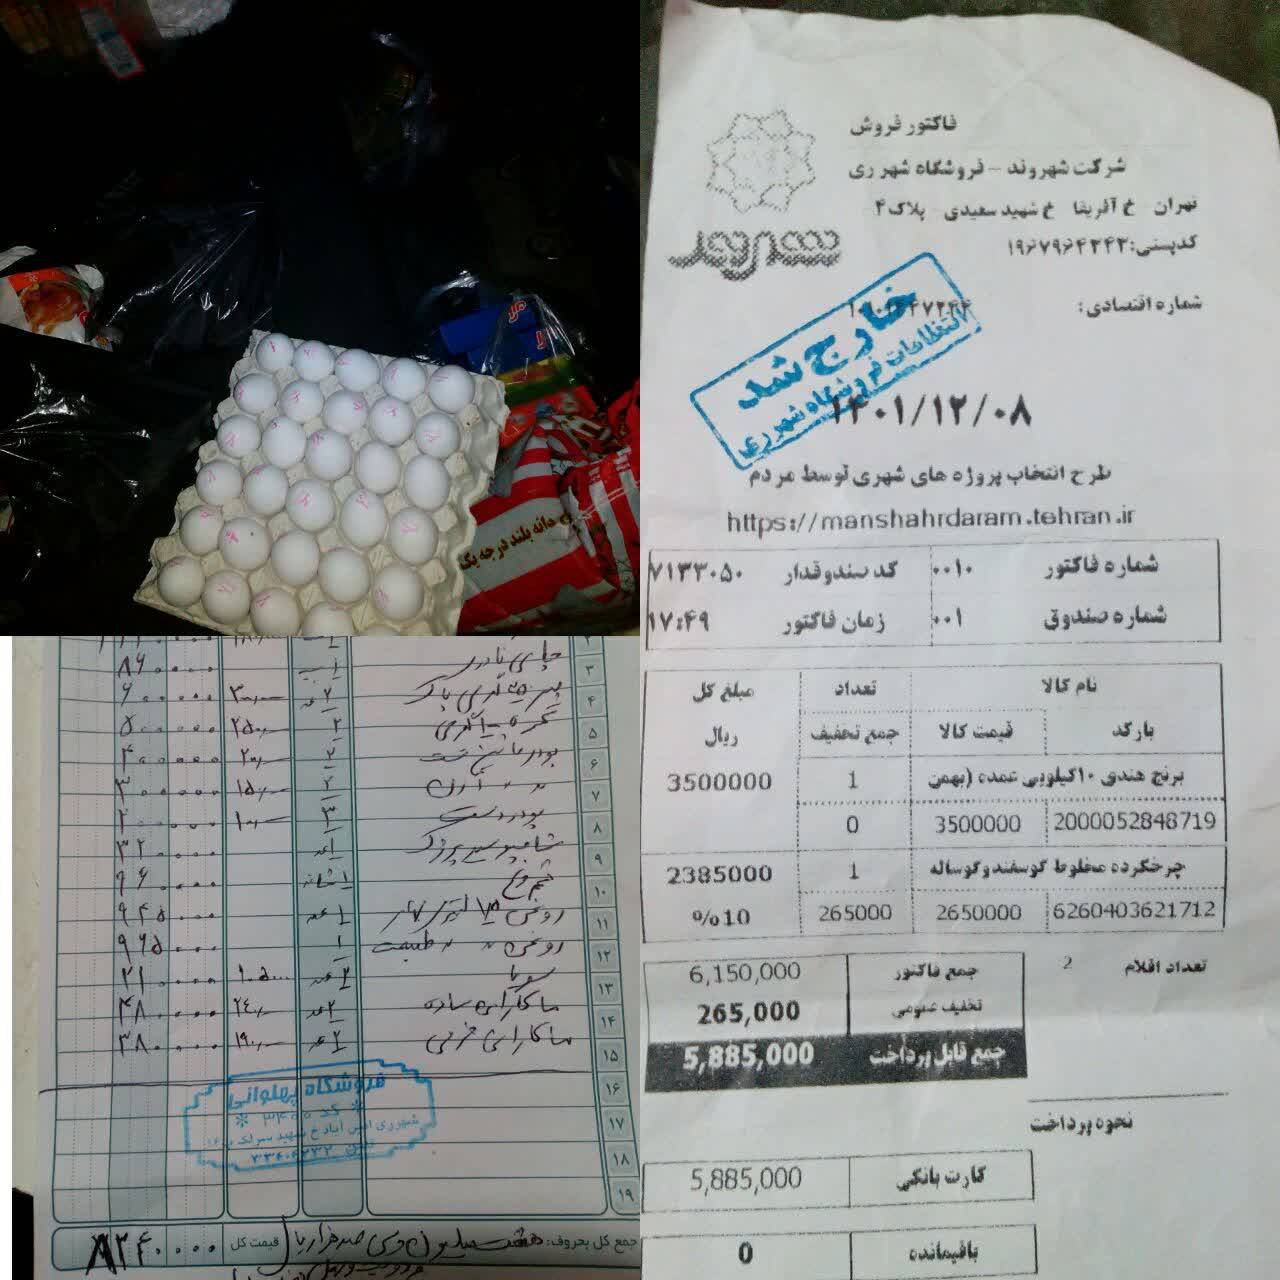 دانه بلند درجه یک
فاکتور فروش
شرکت شهروند - فروشگاه شهر ری
تهران خ آفریقا خ شهید سعیدی پلاک ۴
کدپستی: ۱۹۶۷۹۶۴۳۴۳
شهروند
شماره اقتصادی:
خارج شد
انتظامات فروشگاه شهرری
۱۴۰۱/۱۲/۰۸
طرح انتخاب پروژه های شهری توسط مردم
https://manshahrdaram.tehran.ir
شماره فاکتور ۰۰۱۰ کد صندوقدار ۷۱۳۳۰۵۰
شماره صندوق ۰۰۱ زمان فاکتور ۱۷:۴۹
نام کالا تعداد مبلغ کل
بارکد قیمت کالا جمع تخفیف ریال
برنج هندی ۱۰کیلویی عمده (بهمن 1 3500000
2000052848719 3500000 0
چرخکرده مخلوط گوسفندوگوساله 1 2385000
6260403621712 2650000 265000 %10
تعداد اقلام 2
جمع فاکتور 6,150,000
تخفیف عمومی 265,000
جمع قابل پرداخت 5,885,000
نحوه پرداخت
کارت بانکی 5,885,000
باقیمانده 0
۳ چای نادری ۸۶۰۰۰۰
۴ ۲ عدد ۳۰۰۰۰۰ ۶۰۰۰۰۰
۵ ۲ ۲۵۰۰۰۰ ۵۰۰۰۰۰
۶ پودر ماشین ۲ ۲۰۰۰۰۰ ۴۰۰۰۰۰
۷ ۲ ۱۵۰۰۰۰ ۳۰۰۰۰۰
۸ پودر دست ۳
۹ شامپو ۱ عدد ۳۲۰۰۰۰
۱۰ تخم مرغ ۱ شانه ۹۶۰۰۰۰
۱۱ روغن ۱ عدد ۹۴۵۰۰۰
۱۲ روغن طبیعت ۱ ۹۶۵۰۰۰
۱۳ سویا ۲ عدد ۱۰۵۰۰۰ ۲۱۰۰۰۰
۱۴ ماکارانی ساده ۲ عدد ۲۴۰۰۰۰ ۴۸۰۰۰۰
۱۵ ماکارانی فرمی ۲ عدد ۱۹۰۰۰۰ ۳۸۰۰۰۰
۱۶
۱۷
۱۸
۱۹
فروشگاه پهلوانی
جمع کل بحروف: هشت میلیون و سی صد هزار ریال قیمت کل ۸۳۴۰۰۰۰